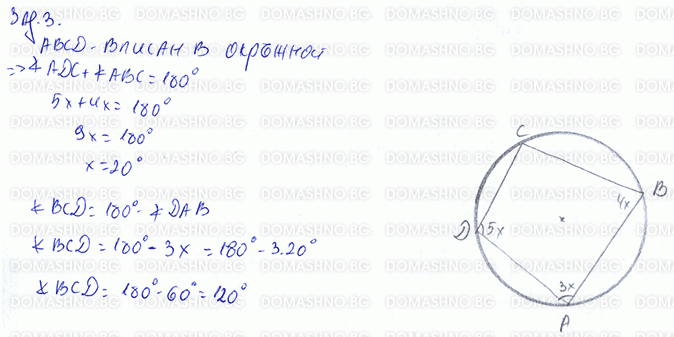 Зад. 3.
ABCD - ВПИСАН В ОКРЪЖНОСТ
=> ∢ADC + ∢ABC = 180°
5x + 4x = 180°
9x = 180°
x = 20°
∢BCD = 180° - ∢DAB
∢BCD = 180° - 3x = 180° - 3.20°
∢BCD = 180° - 60° = 120°
C
B
4x
D 5x
3x
A
DOMASHNO.BG